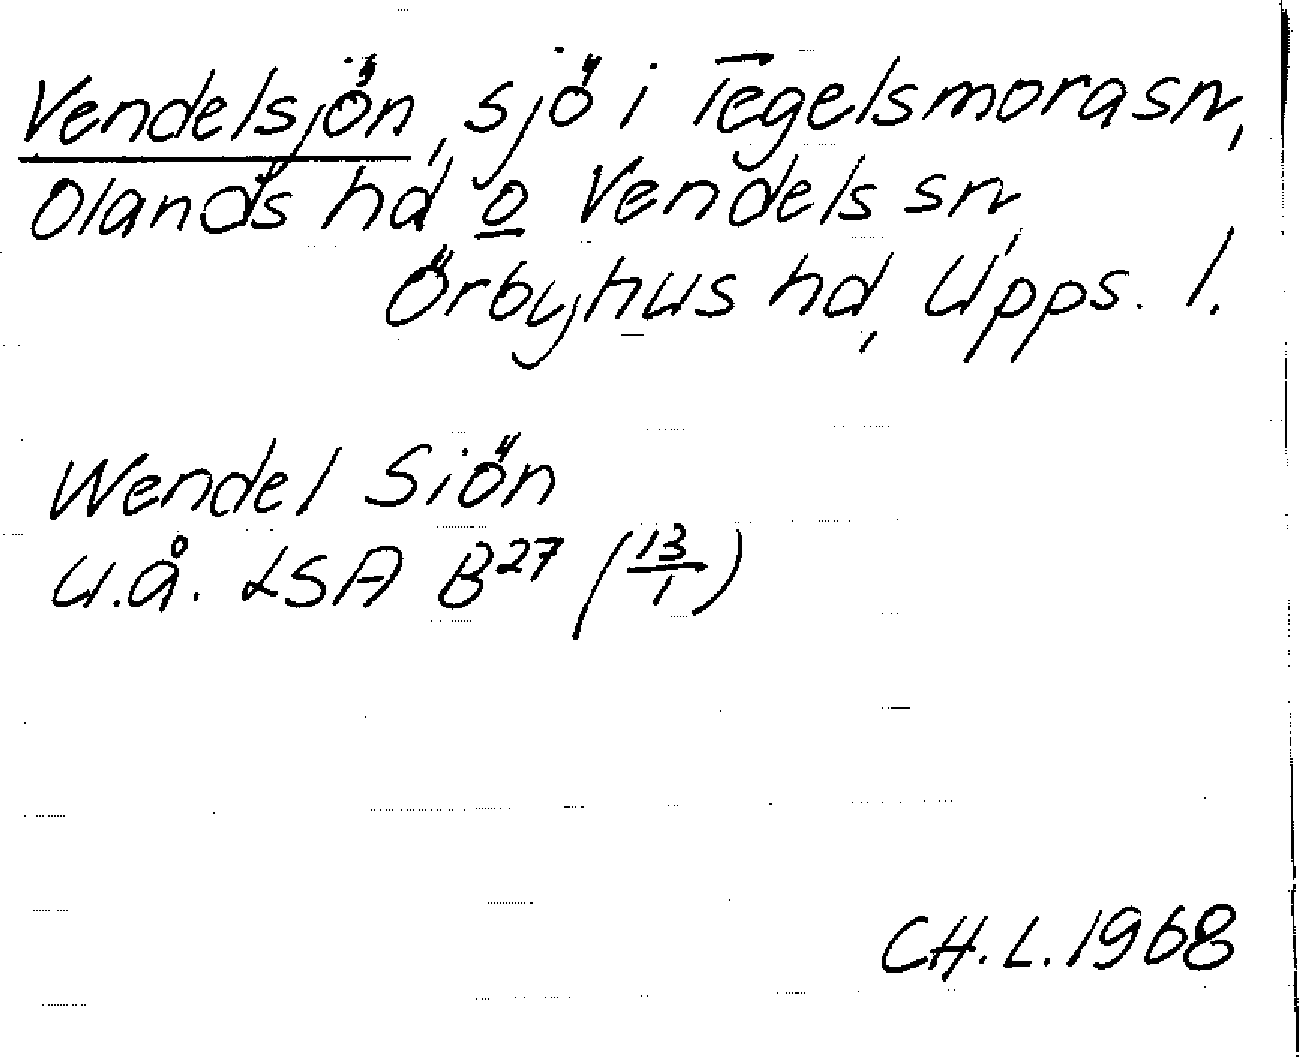 Vendelsjön, sjö i Tegelsmora sn,
Olands hd o Vendels sn,
Örbyhus hd, Upps. l.
Wendel Siön
u.å. LSA B27 (13/1)
CH.L. 1968